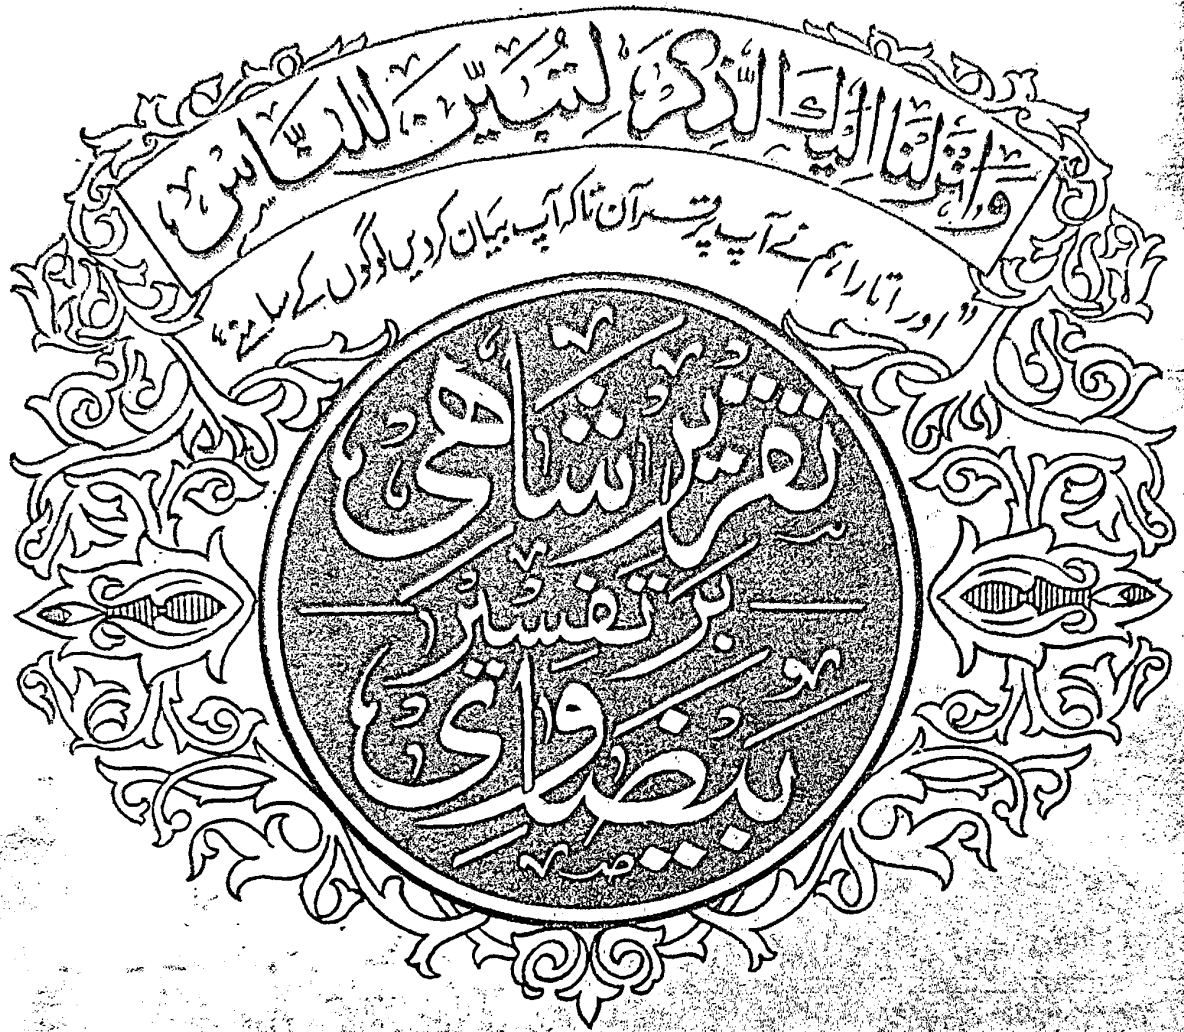 وَاَنْزَلْنَا اِلَيْكَ الذِّكْرَ لِتُبَيِّنَ لِلنَّاسِ
”اور اتارا ہم نے آپ پر قرآن تاکہ آپ بیان کردیں لوگوں کے سامنے“
تقریر شاھی
بر تفسیر
بیضاوی